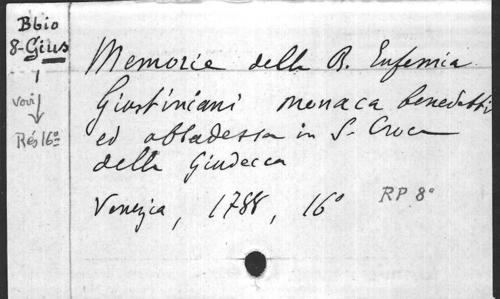 Bbio
8-Gius
voir
Rés 16º
Memorie della B. Eufemia
Giustiniani monaca benedetti
ed abbadessa in S. Croce
della Giudecca
Venezia, 1788, 16º
RP 8º